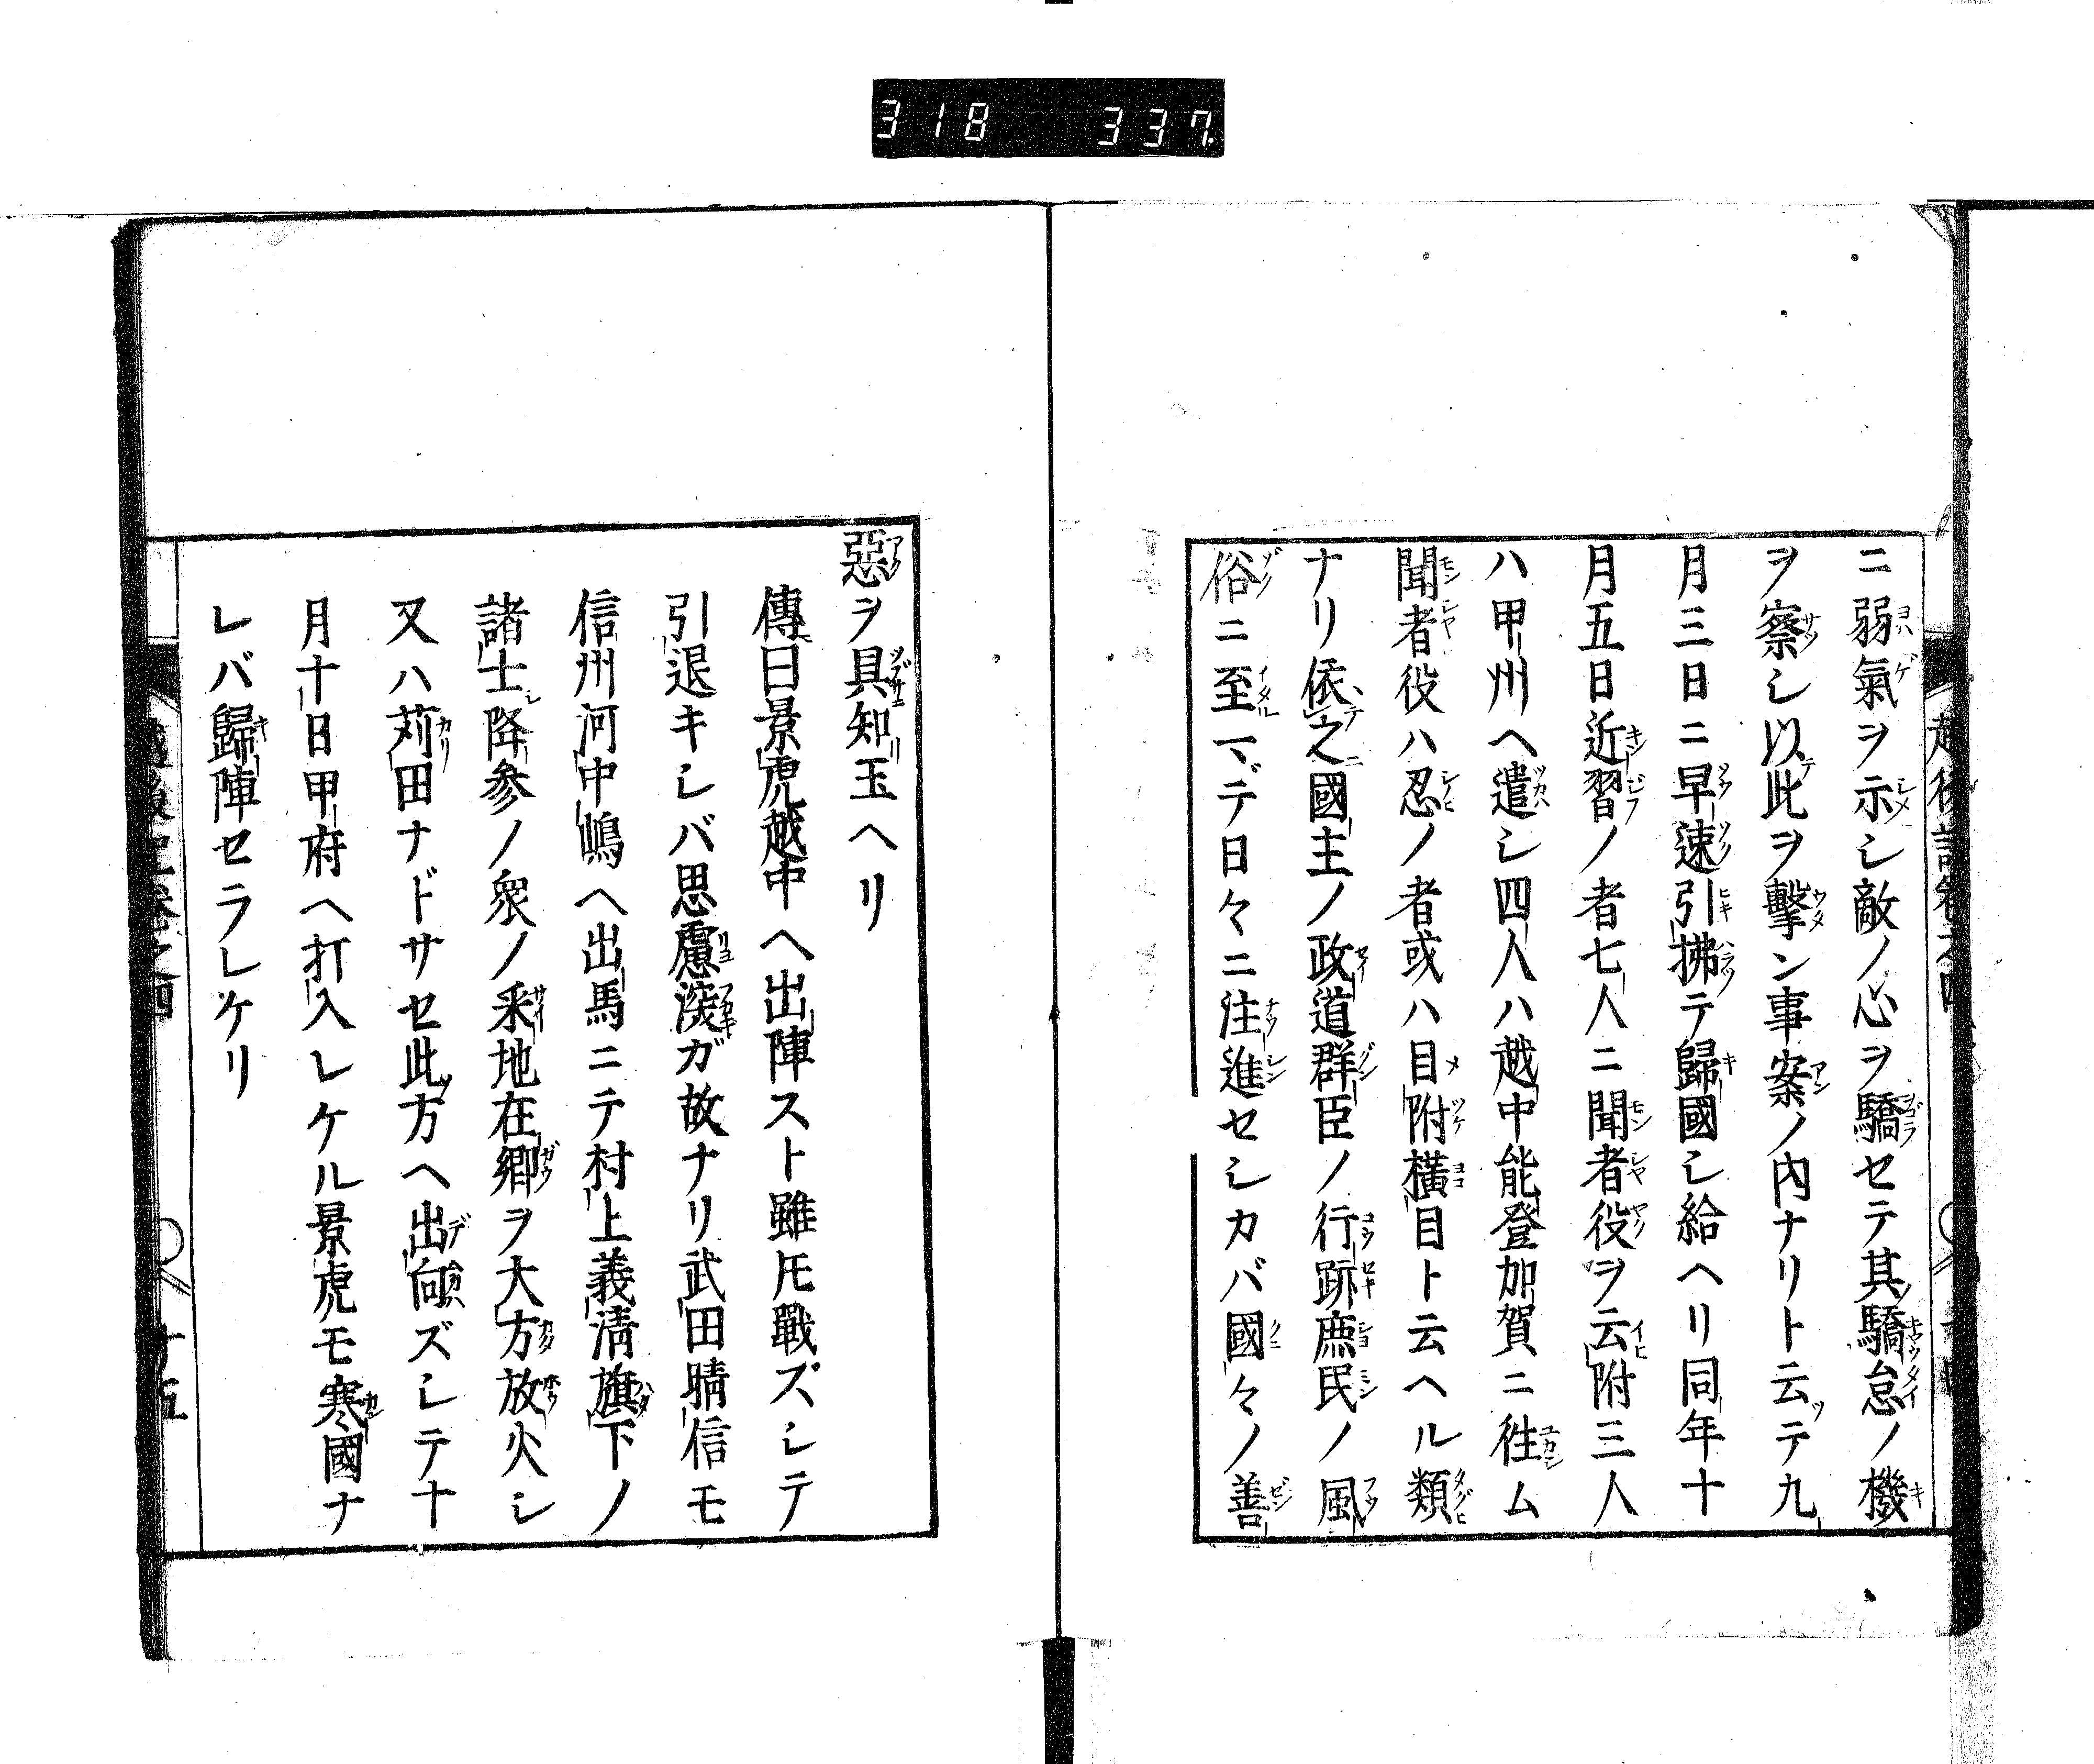 318 337
ニ弱氣ヲ示シ敵ノ心ヲ驕セテ其驕怠ノ機
ヲ察シ以此ヲ擊ン事案ノ內ナリト云テ九
月三日ニ早速引拂テ歸國シ給ヘリ同年十
月五日近習ノ者七人ニ聞者役ヲ云附三人
ハ甲州ヘ遣シ四人ハ越中能登加賀ニ徃ム
聞者役ハ忍ノ者或ハ目附橫目ト云ヘル類
ナリ依之國主ノ政道群臣ノ行跡庶民ノ風
俗ニ至マデ日々ニ注進セシカバ國々ノ善
惡ヲ具知玉ヘリ
傳曰景虎越中ヘ出陣スト雖𪜈戰ズシテ
引退キシバ思慮深ガ故ナリ武田晴信モ
信州河中嶋ヘ出馬ニテ村上義淸旗下ノ
諸士降參ノ衆ノ釆地在鄉ヲ大方放火シ
又ハ苅田ナドサセ此方ヘ出向ズシテ十
月十日甲府ヘ打入レケル景虎モ寒國ナ
レバ歸陣セラレケリ
十五